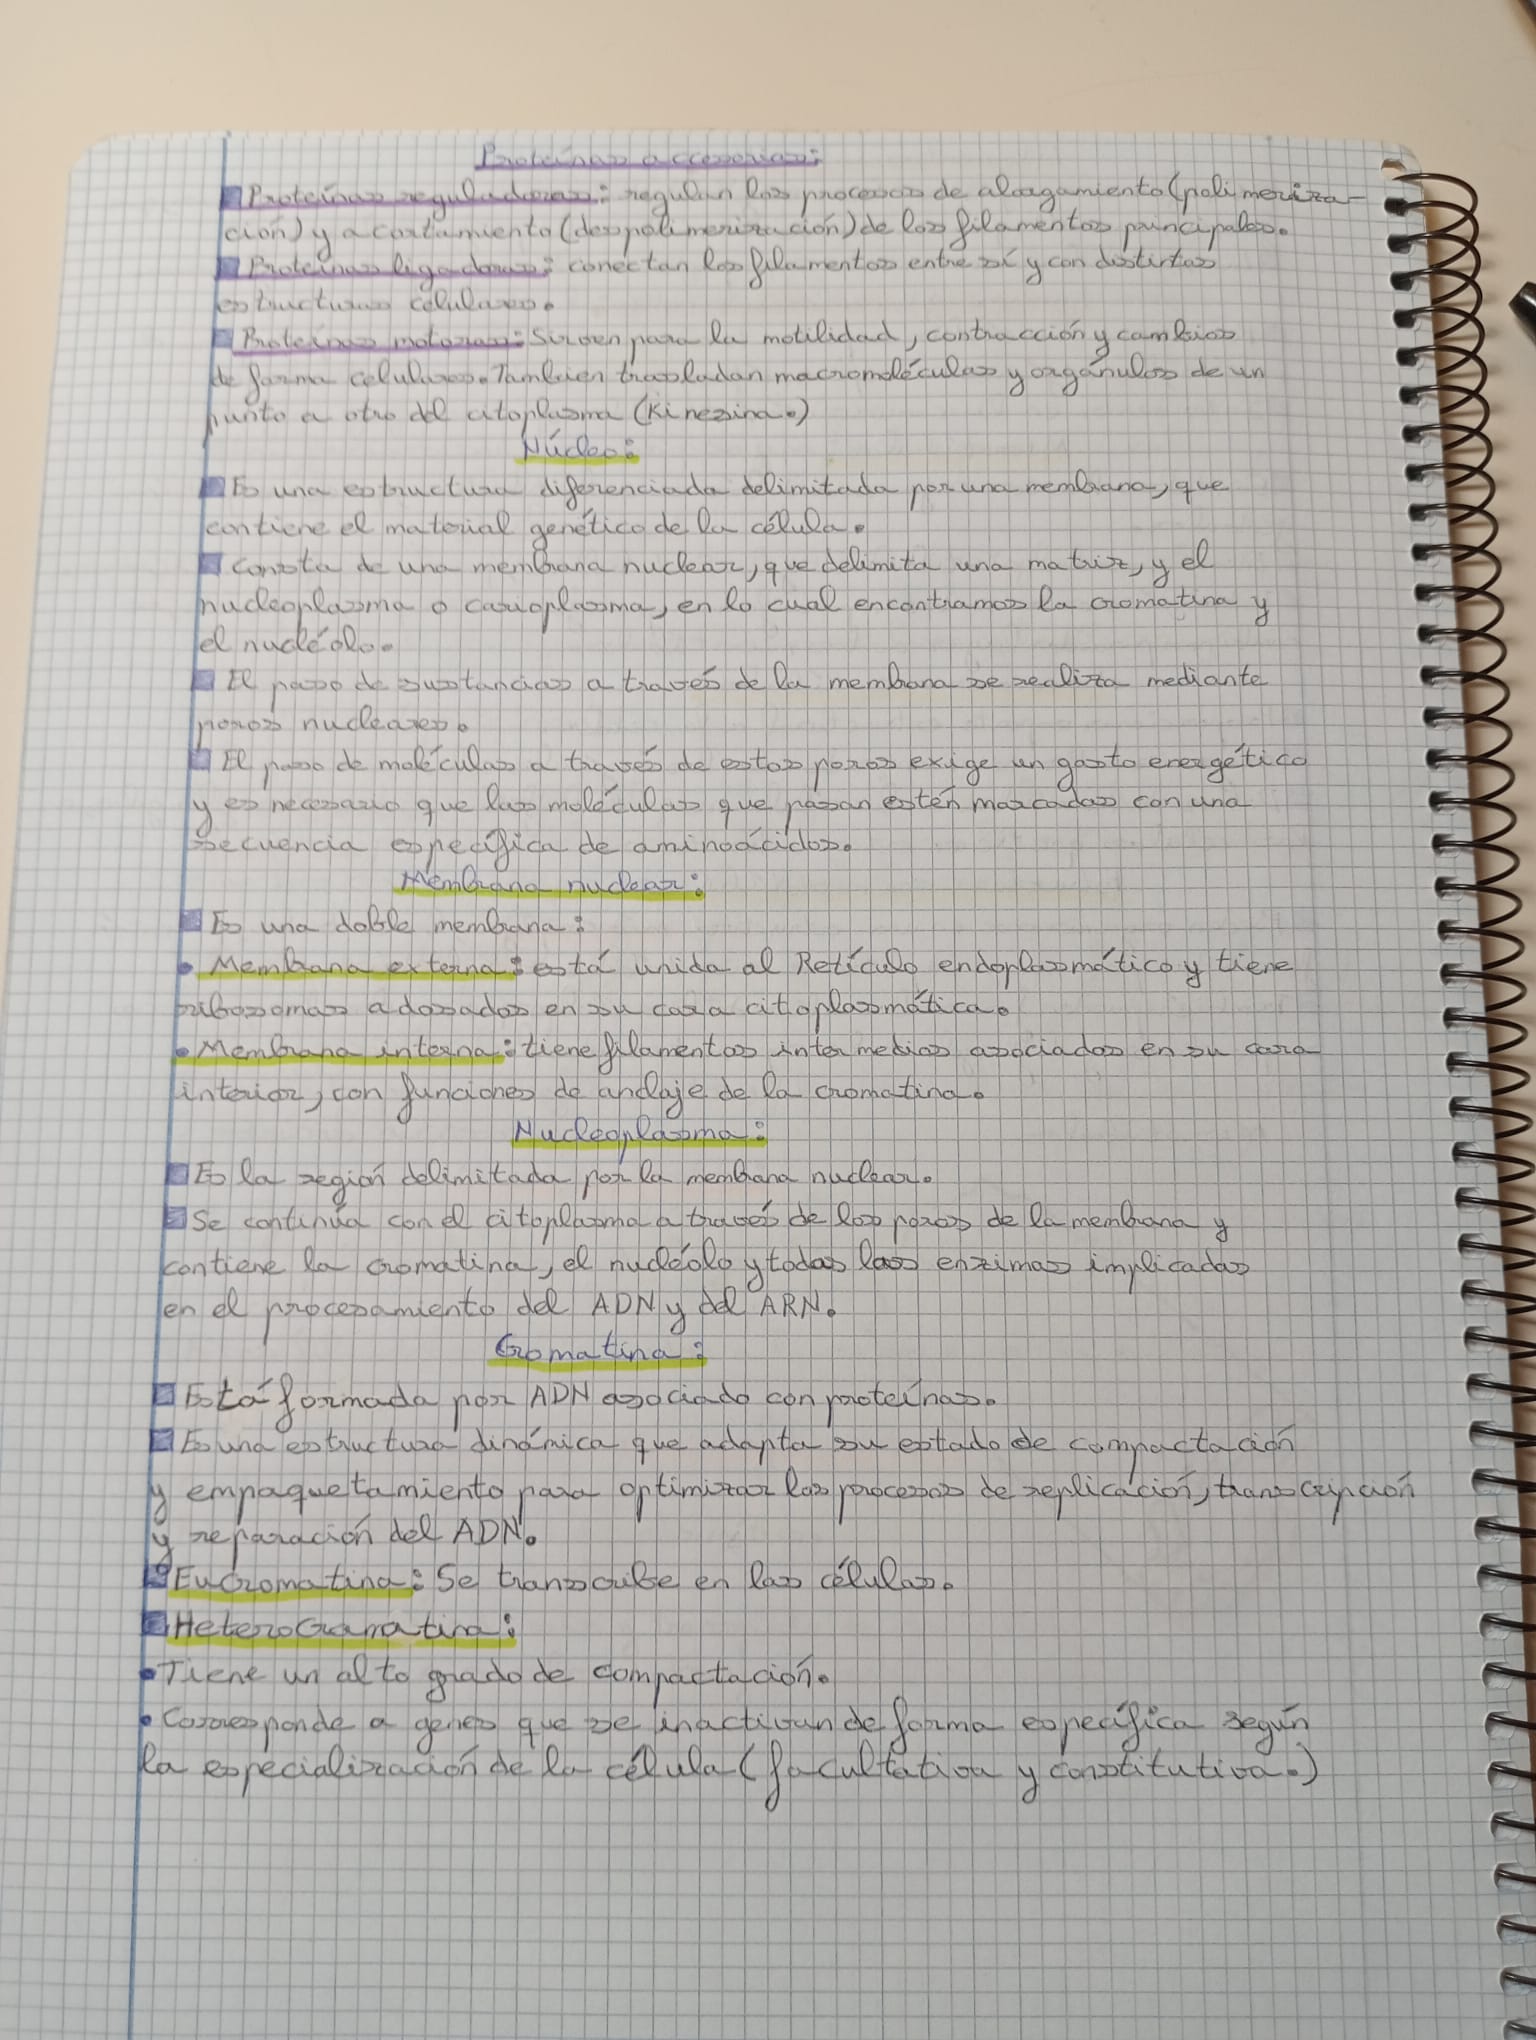 Proteínas accesorias:
Proteínas reguladoras: regulan los procesos de alargamiento (polimeriza-
ción) y acortamiento (despolimerización) de los filamentos principales.
Proteínas ligadoras: conectan los filamentos entre sí y con distintas
estructuras celulares.
Proteínas motoras: Sirven para la motilidad, contracción y cambios
de forma celulares. Tambien trasladan macromoléculas y orgánulos de un
punto a otro del citoplasma (Kinesina.)
Núcleo:
Es una estructura diferenciada delimitada por una membrana, que
contiene el material genético de la célula.
Consta de una membrana nuclear, que delimita una matriz, y el
nucleoplasma o carioplasma, en lo cual encontramos la cromatina y
el nucléolo.
El paso de sustancias a través de la membrana se realiza mediante
poros nucleares.
El paso de moléculas a través de estos poros exige un gasto energético
y es necesario que las moléculas que pasan estén marcadas con una
secuencia específica de aminoácidos.
Membrana nuclear:
Es una doble membrana:
• Membrana externa: está unida al Retículo endoplasmático y tiene
ribosomas adosados en su cara citoplasmática.
• Membrana interna: tiene filamentos intermedios asociados en su cara
interior, con funciones de anclaje de la cromatina.
Nucleoplasma:
Es la región delimitada por la membrana nuclear.
Se continúa con el citoplasma a través de los poros de la membrana y
contiene la cromatina, el nucléolo y todas las enzimas implicadas
en el procesamiento del ADN y del ARN.
Cromatina:
Está formada por ADN asociado con proteínas.
Es una estructura dinámica que adapta su estado de compactación
y empaquetamiento para optimizar los procesos de replicación, transcripción
y reparación del ADN.
Eucromatina: Se transcribe en las células.
Heterocromatina:
• Tiene un alto grado de compactación.
• Corresponde a genes que se inactivan de forma específica según
la especialización de la célula (facultativa y constitutiva.)